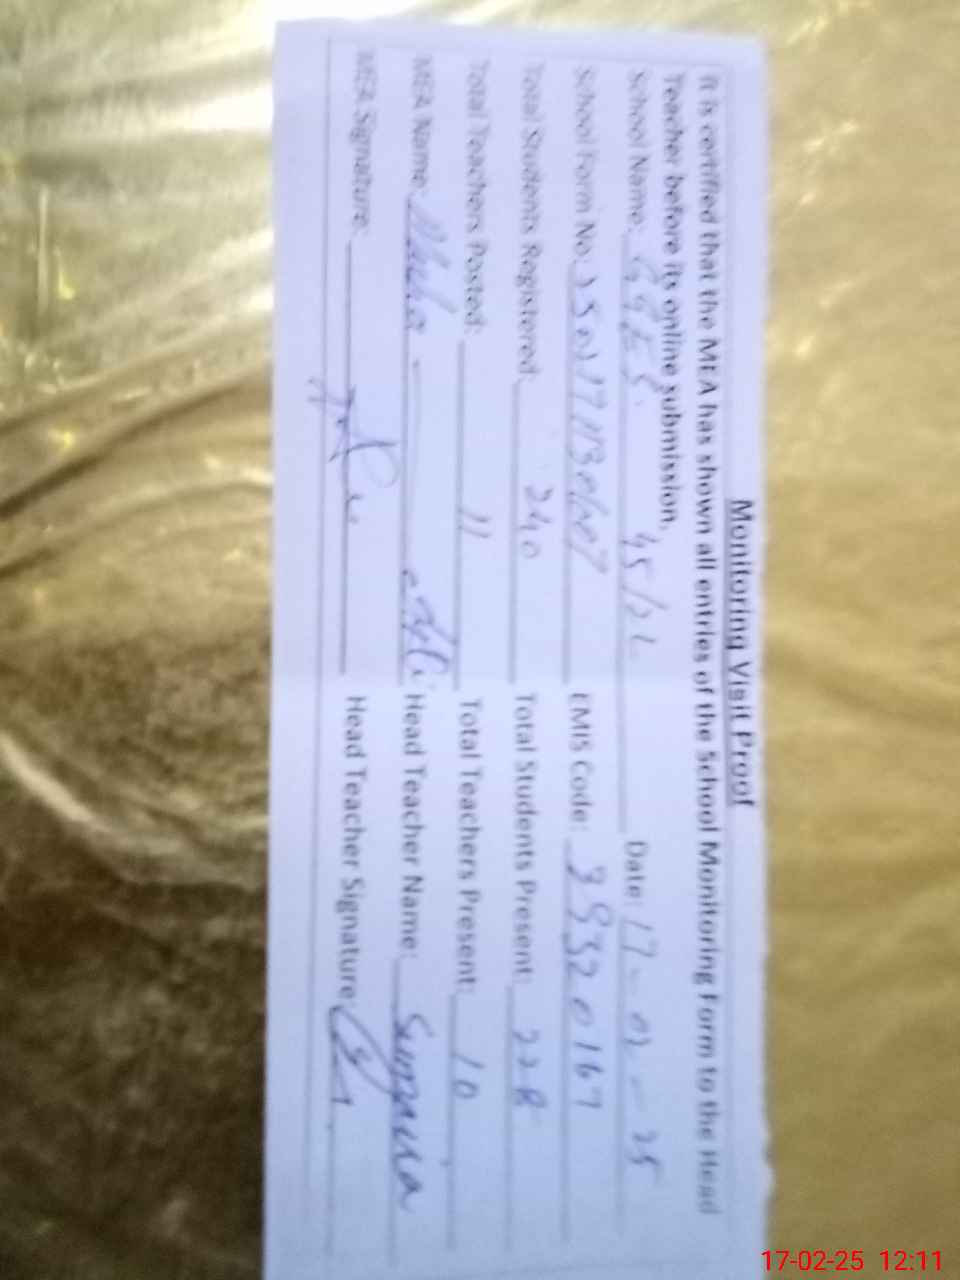 Monitoring Visit Proof
It is certified that the MEA has shown all entries of the School Monitoring Form to the Head
Teacher before its online submission.
School Name: GGES. 45/2L Date: 17-02-25
School Form No: EMIS Code: 39320167
Total Students Registered: 240 Total Students Present: 228
Total Teachers Posted: 11 Total Teachers Present: 10
MEA Name: Head Teacher Name: Sumaira
MEA Signature: Head Teacher Signature:
17-02-25 12:11